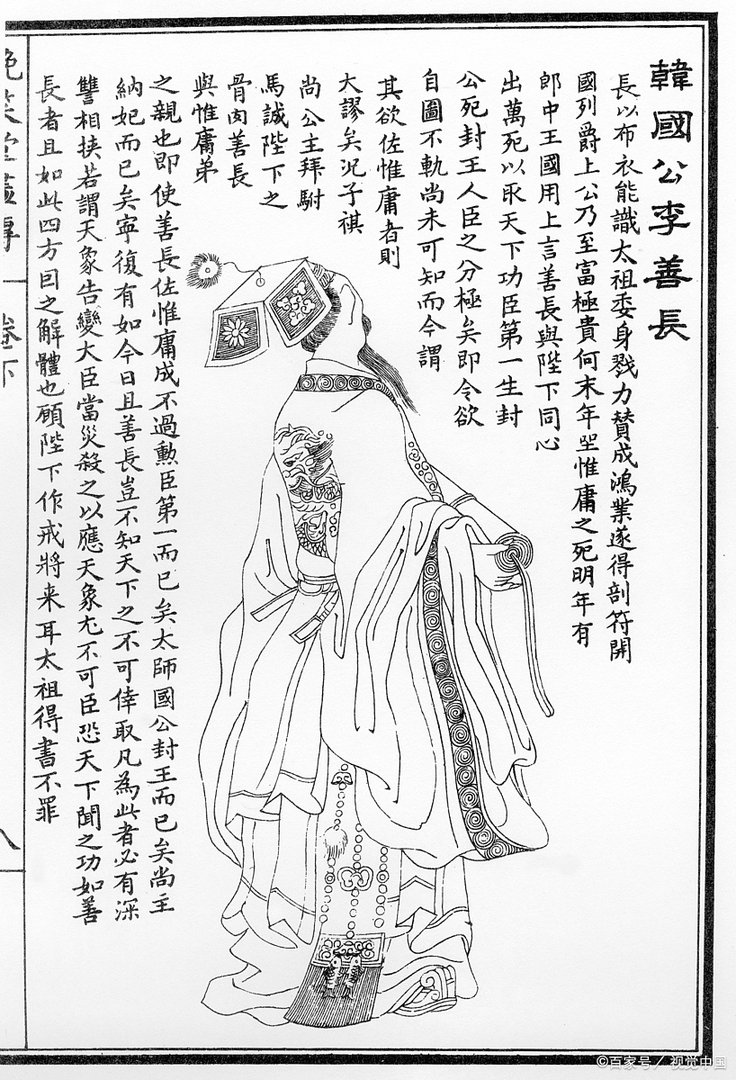 韓國公李善長
長以布衣能識太祖委身戮力贊成鴻業遂得剖符開
國列爵上公乃至富極貴何末年坐惟庸之死明年有
郎中王國用上言善長與陛下同心
出萬死以取天下功臣第一生封
公死封王人臣之分極矣即令欲
自圖不軌尚未可知而今謂
其欲佐惟庸者則
大謬矣况子祺
尚公主拜駙
馬誠陛下之
骨肉善長
與惟庸弟
之親也即使善長佐惟庸成不過勲臣第一而已矣太師國公封王而已矣尚主
納妃而已矣寧復有如今日且善長豈不知天下之不可倖取凡為此者必有深
讐相挾若謂天象告變大臣當災殺之以應天象尤不可臣恐天下聞之功如善
長者且如此四方囙之解體也顧陛下作戒將来耳太祖得書不罪
晚笑堂畫傳 卷下 八
©百家号/视觉中国